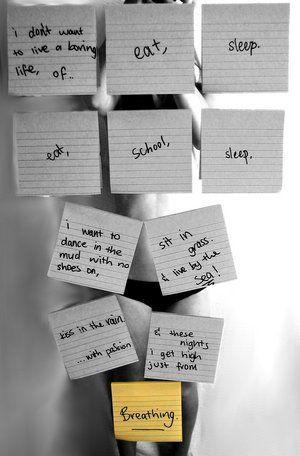 i don't want
to live a boring
life, of..
eat,
sleep.
eat,
school,
sleep.
i want to
dance in the
mud with no
shoes on,
sit in
grass.
& live by the
sea!
kiss in the rain
...with passion
& these
nights
i get high
just from
Breathing.